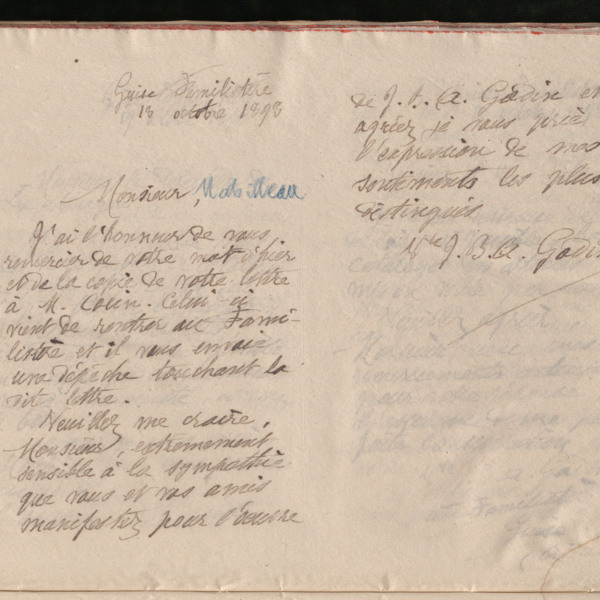 Guise Familistère
13 octobre 1893
Monsieur, Mabilleau
J'ai l'honneur de vous
remercier de votre mot d'hier
et de la copie de votre lettre
à M. Colin. Celui ci
vient de rentrer au Fami-
listère et il vous envoie
une dépêche touchant la
dit lettre.
Veuillez me croire,
Monsieur, extrêmement
sensible à la sympathie
que vous et vos amis
manifestez pour l'oeuvre
de J. B. A. Godin et
agréez je vous prie
l'expression de mes
sentiments les plus
distingués
Vve J. B. A. Godin